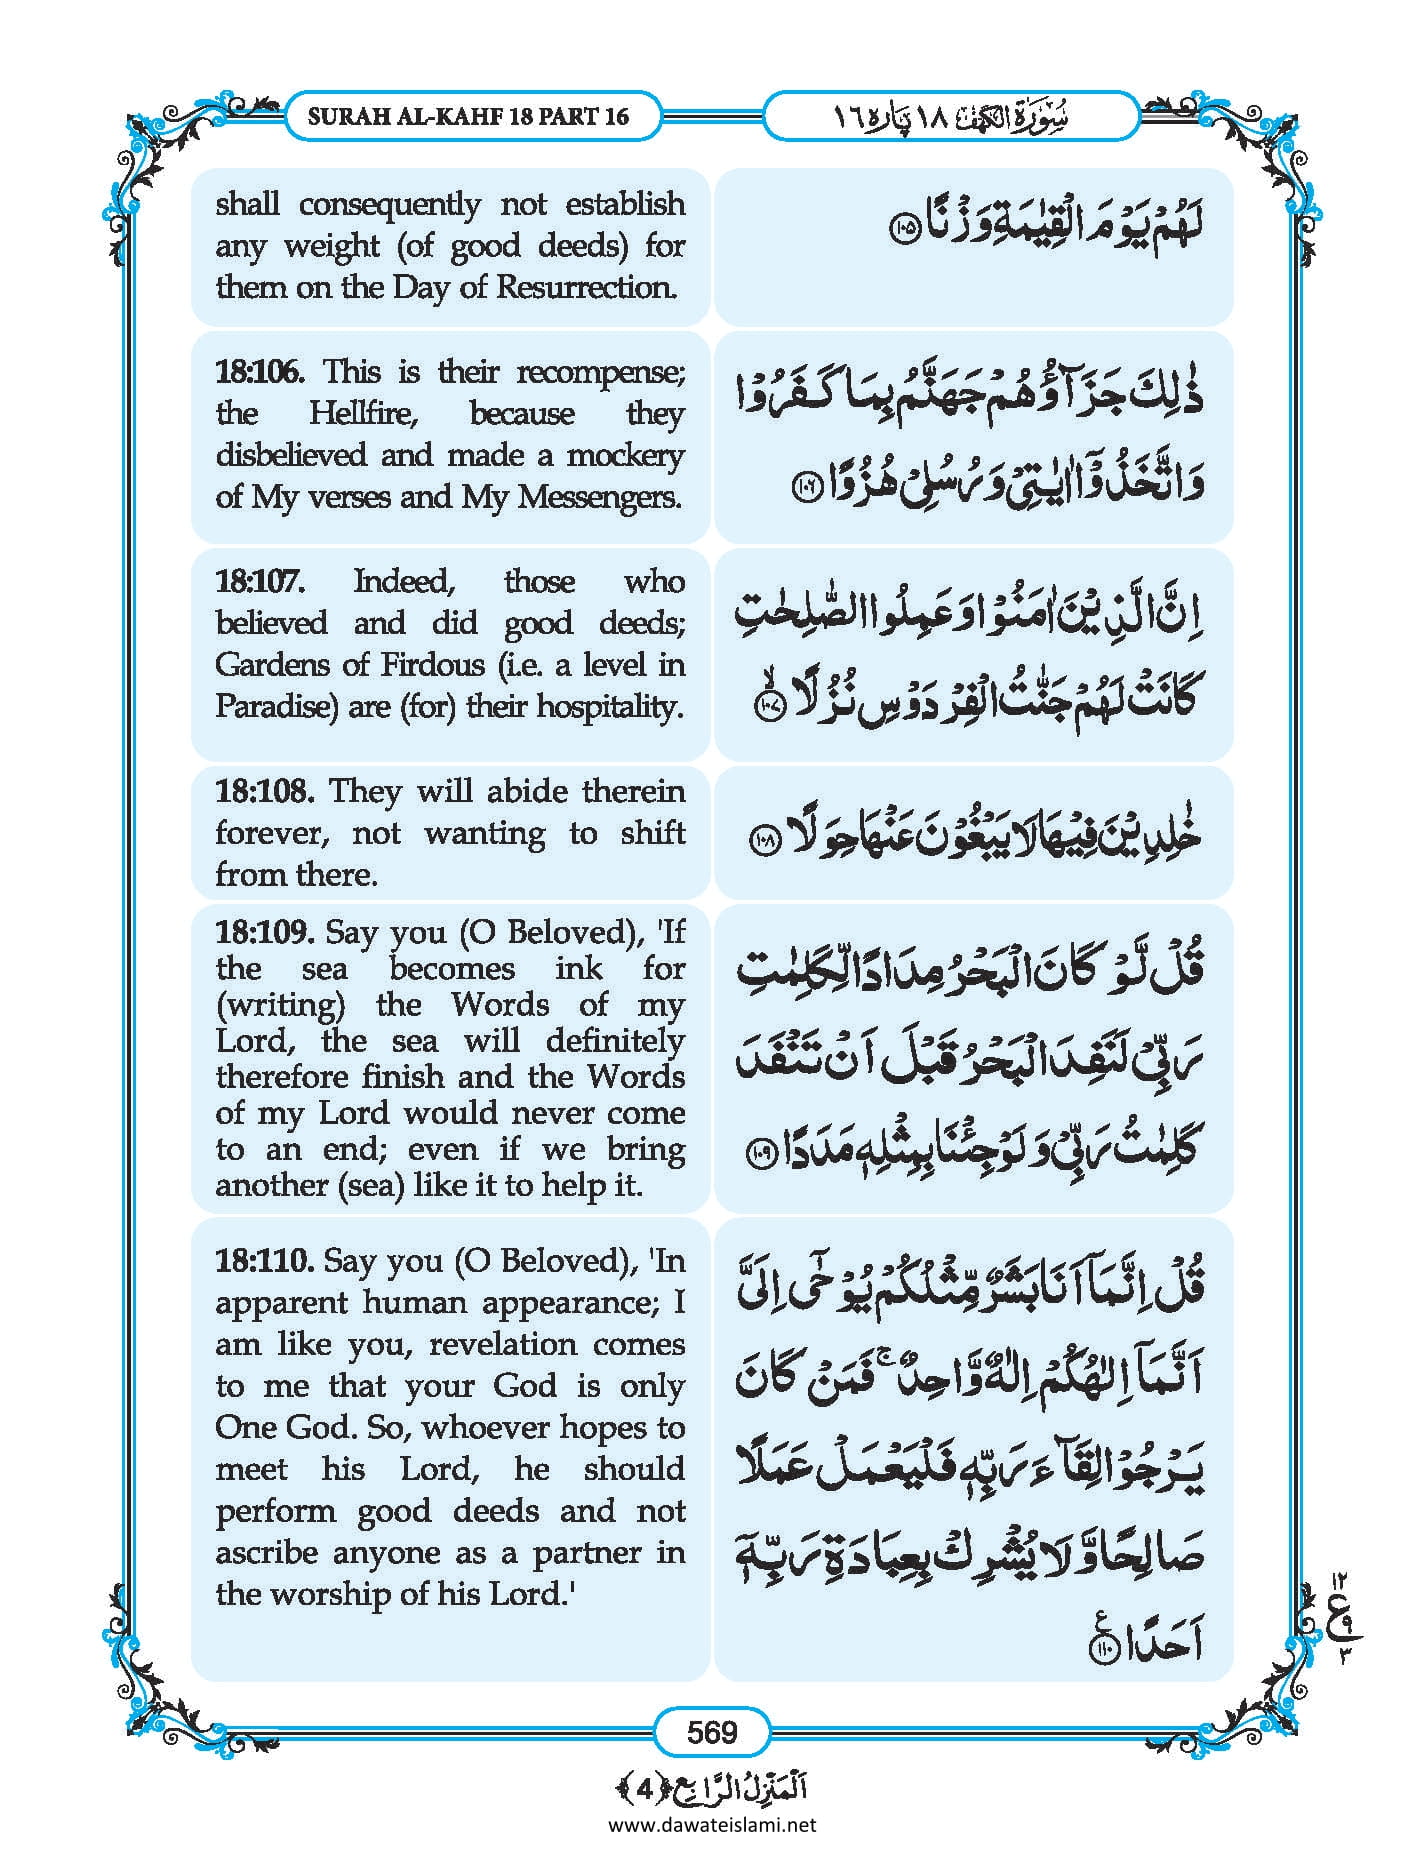 SURAH AL-KAHF 18 PART 16
سُوْرَۃُ الْکَہْف ۱۸ پَارہ ۱٦
shall consequently not establish
any weight (of good deeds) for
them on the Day of Resurrection.
لَهُمْ يَوْمَ الْقِيٰمَةِ وَزْنًا ﴿۱۰۵﴾
18:106. This is their recompense;
the Hellfire, because they
disbelieved and made a mockery
of My verses and My Messengers.
ذٰلِكَ جَزَآؤُهُمْ جَهَنَّمُ بِمَا كَفَرُوْا
وَاتَّخَذُوْۤا اٰيٰتِىْ وَرُسُلِىْ هُزُوًا ﴿۱۰۶﴾
18:107. Indeed, those who
believed and did good deeds;
Gardens of Firdous (i.e. a level in
Paradise) are (for) their hospitality.
اِنَّ الَّذِيْنَ اٰمَنُوْا وَعَمِلُوا الصّٰلِحٰتِ
كَانَتْ لَهُمْ جَنّٰتُ الْفِرْدَوْسِ نُزُلًا ﴿۱۰۷﴾ۙ
18:108. They will abide therein
forever, not wanting to shift
from there.
خٰلِدِيْنَ فِيْهَا لَا يَبْغُوْنَ عَنْهَا حِوَلًا ﴿۱۰۸﴾
18:109. Say you (O Beloved), 'If
the sea becomes ink for
(writing) the Words of my
Lord, the sea will definitely
therefore finish and the Words
of my Lord would never come
to an end; even if we bring
another (sea) like it to help it.
قُلْ لَّوْ كَانَ الْبَحْرُ مِدَادًا لِّكَلِمٰتِ
رَبِّىْ لَنَفِدَ الْبَحْرُ قَبْلَ اَنْ تَنْفَدَ
كَلِمٰتُ رَبِّىْ وَلَوْ جِئْنَا بِمِثْلِهٖ مَدَدًا ﴿۱۰۹﴾
18:110. Say you (O Beloved), 'In
apparent human appearance; I
am like you, revelation comes
to me that your God is only
One God. So, whoever hopes to
meet his Lord, he should
perform good deeds and not
ascribe anyone as a partner in
the worship of his Lord.'
قُلْ اِنَّمَاۤ اَنَا بَشَرٌ مِّثْلُكُمْ يُوْحٰۤى اِلَىَّ
اَنَّمَاۤ اِلٰهُكُمْ اِلٰهٌ وَّاحِدٌ ۚ فَمَنْ كَانَ
يَرْجُوْا لِقَآءَ رَبِّهٖ فَلْيَعْمَلْ عَمَلًا
صَالِحًا وَّلَا يُشْرِكْ بِعِبَادَةِ رَبِّهٖۤ
اَحَدًا ﴿۱۱۰﴾ع
۱۲
ع ۹
۳
569
اَلْمَنْزِلُ الرَّابِع ﴿4﴾
www.dawateislami.net